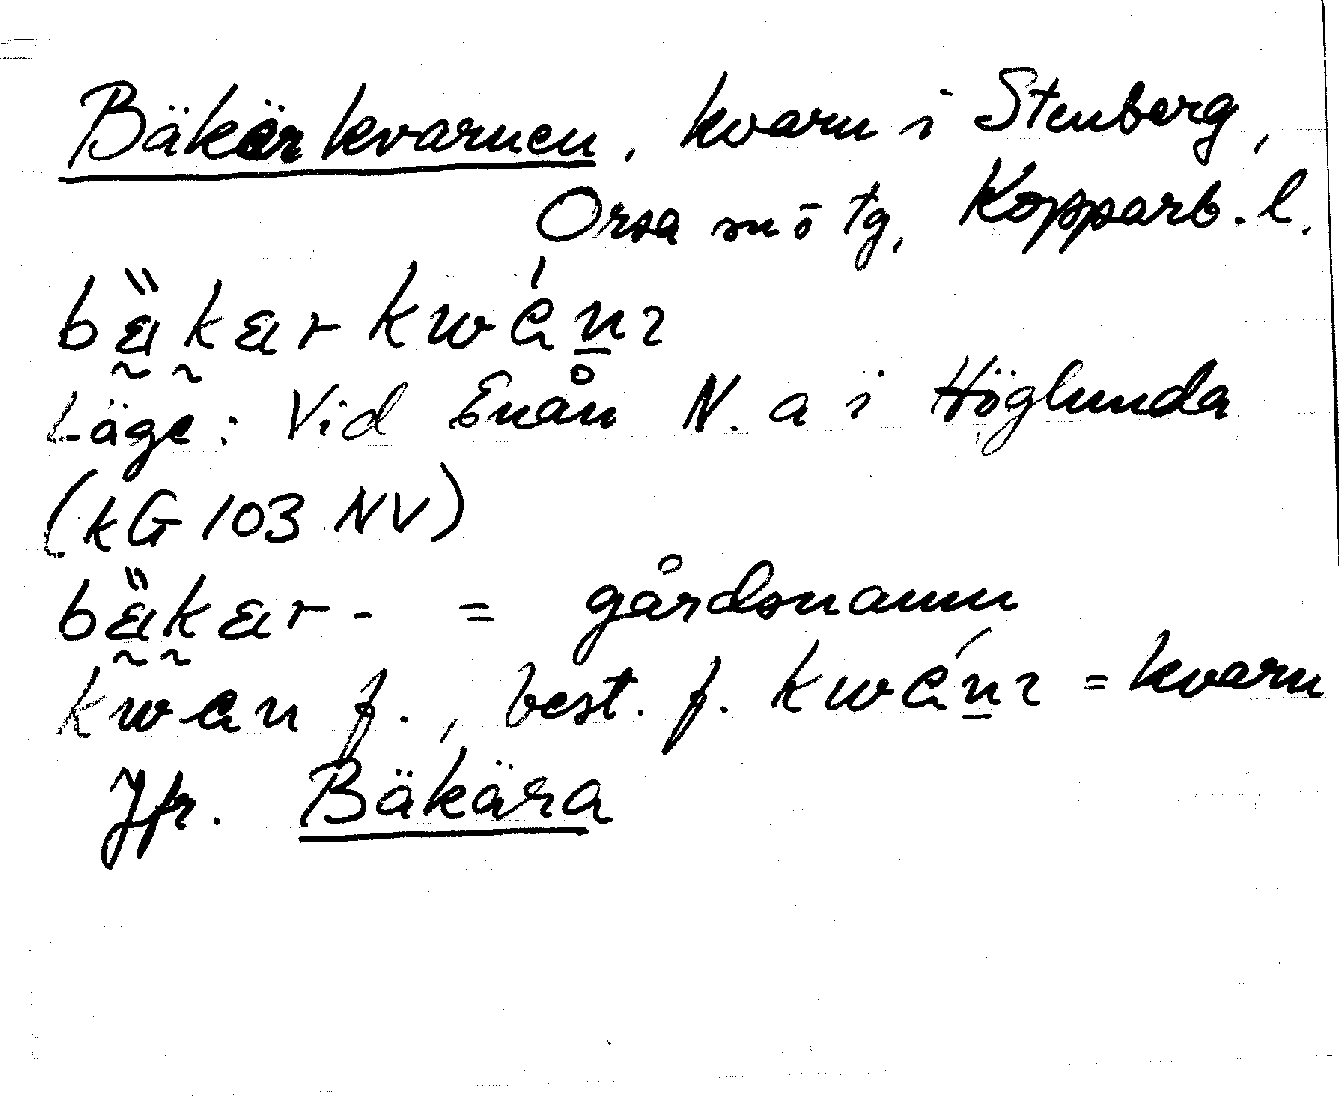 Bäkärkvarnen, kvarn i Stenberg,
Orsa sn o tg, Kopparb. l.
bäkär kwénɿ
Läge: Vid Enån N. a i Höglunda
(kG 103 NV)
bäkär- = gårdsnamn
kwen f., best. f. kwénɿ = kvarn
Jfr. Bäkära